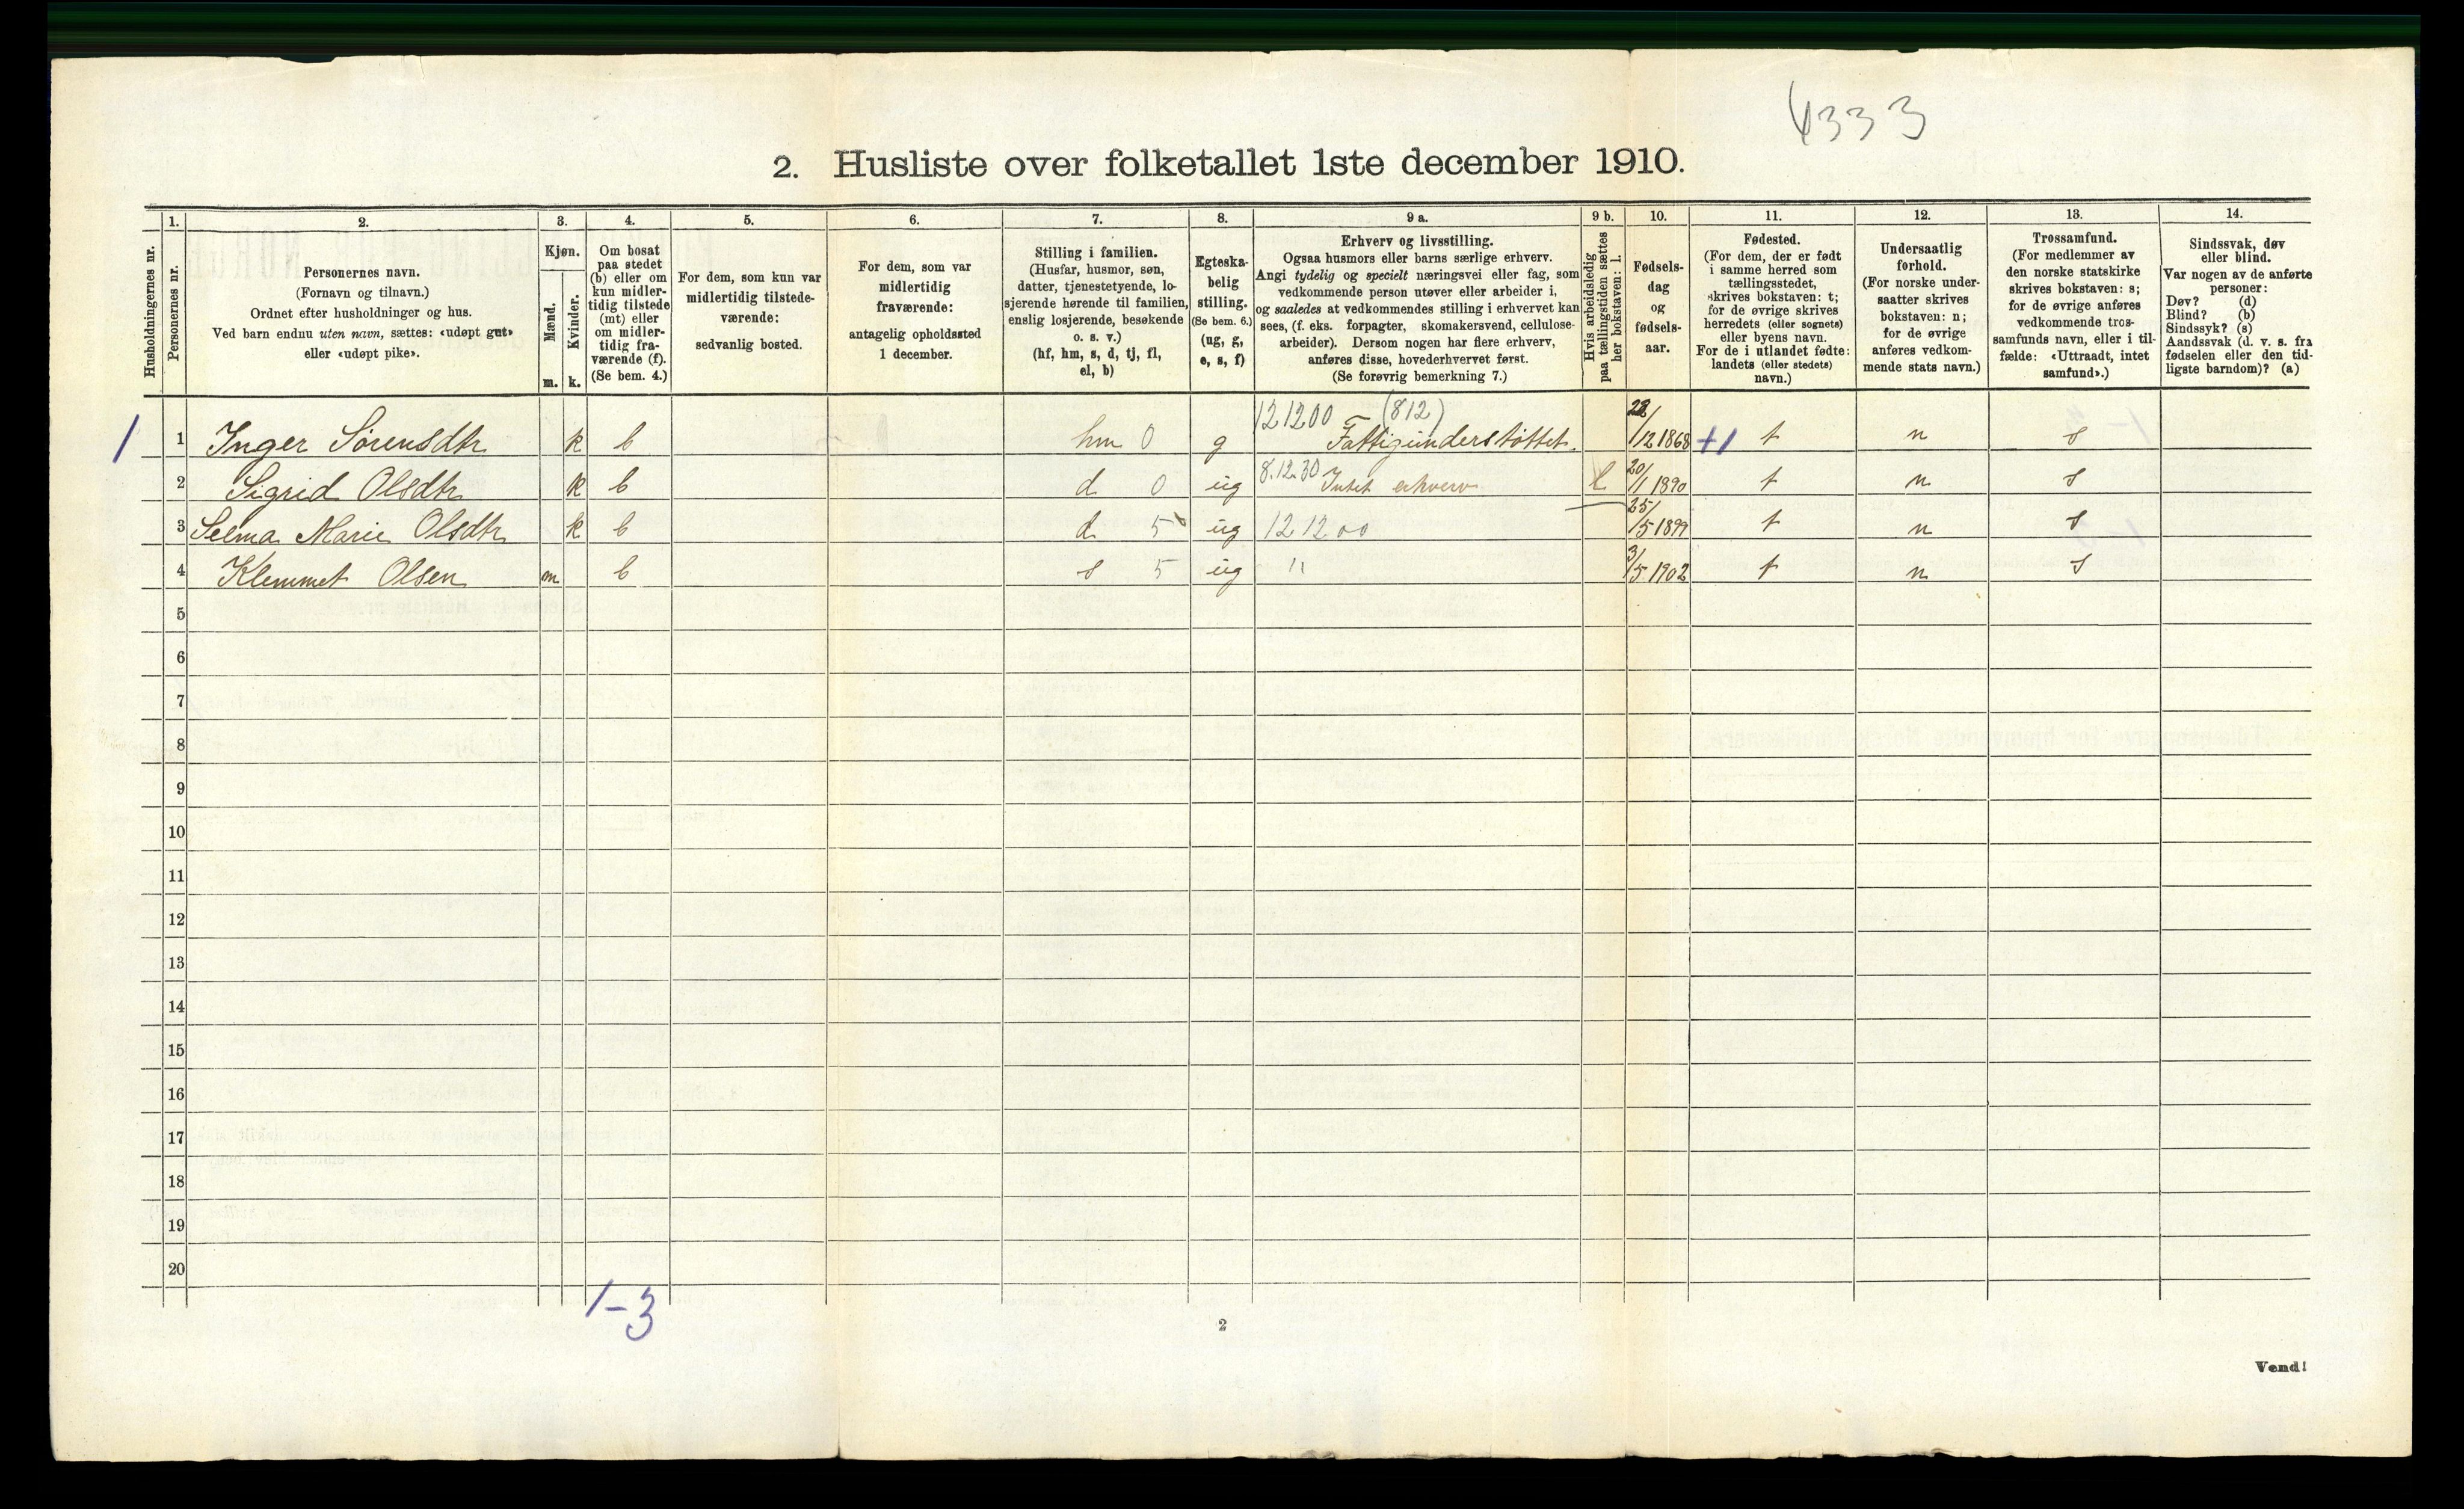 4333
2. Husliste over folketallet 1ste december 1910.
Husholdningernes nr.
1. Personernes nr.
2. Personernes navn. (Fornavn og tilnavn.) Ordnet efter husholdninger og hus. Ved barn endnu uten navn, sættes: «udøpt gut» eller «udøpt pike».
3. Kjøn. Mænd. m. Kvinder. k.
4. Om bosat paa stedet (b) eller om kun midler-tidig tilstede (mt) eller om midler-tidig fra-værende (f). (Se bem. 4.)
5. For dem, som kun var midlertidig tilstede-værende: sedvanlig bosted.
6. For dem, som var midlertidig fraværende: antagelig opholdssted 1 december.
7. Stilling i familien. (Husfar, husmor, søn, datter, tjenestetyende, lo-sjerende hørende til familien, enslig losjerende, besøkende o. s. v.) (hf, hm, s, d, tj, fl, el, b)
8. Egteska-belig stilling. (Se bem. 6.) (ug, g, e, s, f)
9 a. Erhverv og livsstilling. Ogsaa husmors eller barns særlige erhverv. Angi tydelig og specielt næringsvei eller fag, som vedkommende person utøver eller arbeider i, og saaledes at vedkommendes stilling i erhvervet kan sees, (f. eks. forpagter, skomakersvend, cellulose-arbeider). Dersom nogen har flere erhverv, anføres disse, hovederhvervet først. (Se forøvrig bemerkning 7.)
9 b. Hvis arbeidsledig paa tællingstiden sættes her bokstaven: l.
10. Fødsels-dag og fødsels-aar.
11. Fødested. (For dem, der er født i samme herred som tællingsstedet, skrives bokstaven: t; for de øvrige skrives herredets (eller sognets) eller byens navn. For de i utlandet fødte: landets (eller stedets) navn.)
12. Undersaatlig forhold. (For norske under-saatter skrives bokstaven: n; for de øvrige anføres vedkom-mende stats navn.)
13. Trossamfund. (For medlemmer av den norske statskirke skrives bokstaven: s; for de øvrige anføres vedkommende tros-samfunds navn, eller i til-fælde: «Uttraadt, intet samfund».)
14. Sindssvak, døv eller blind. Var nogen av de anførte personer: Døv? (d) Blind? (b) Sindssyk? (s) Aandssvak (d. v. s. fra fødselen eller den tid-ligste barndom)? (a)
1 1 Inger Sørensdtr k b hm 0 g 121200 (812) Fattigunderstøttet. /12 1868 +1 t n s
2 Sigrid Olsdtr k b d 0 ug 8.12.30 Intet erhverv l 20/1 1890 t n s
3 Selma Marie Olsdtr k b d 5 ug 121200 25/5 1899 t n s
4 Klemmet Olsen m b s 5 ug " 3/5 1902 t n s
5
6
7
8
9
10
11
12
13
14
15
16
17
18
19
20
1-3
2
Vend!